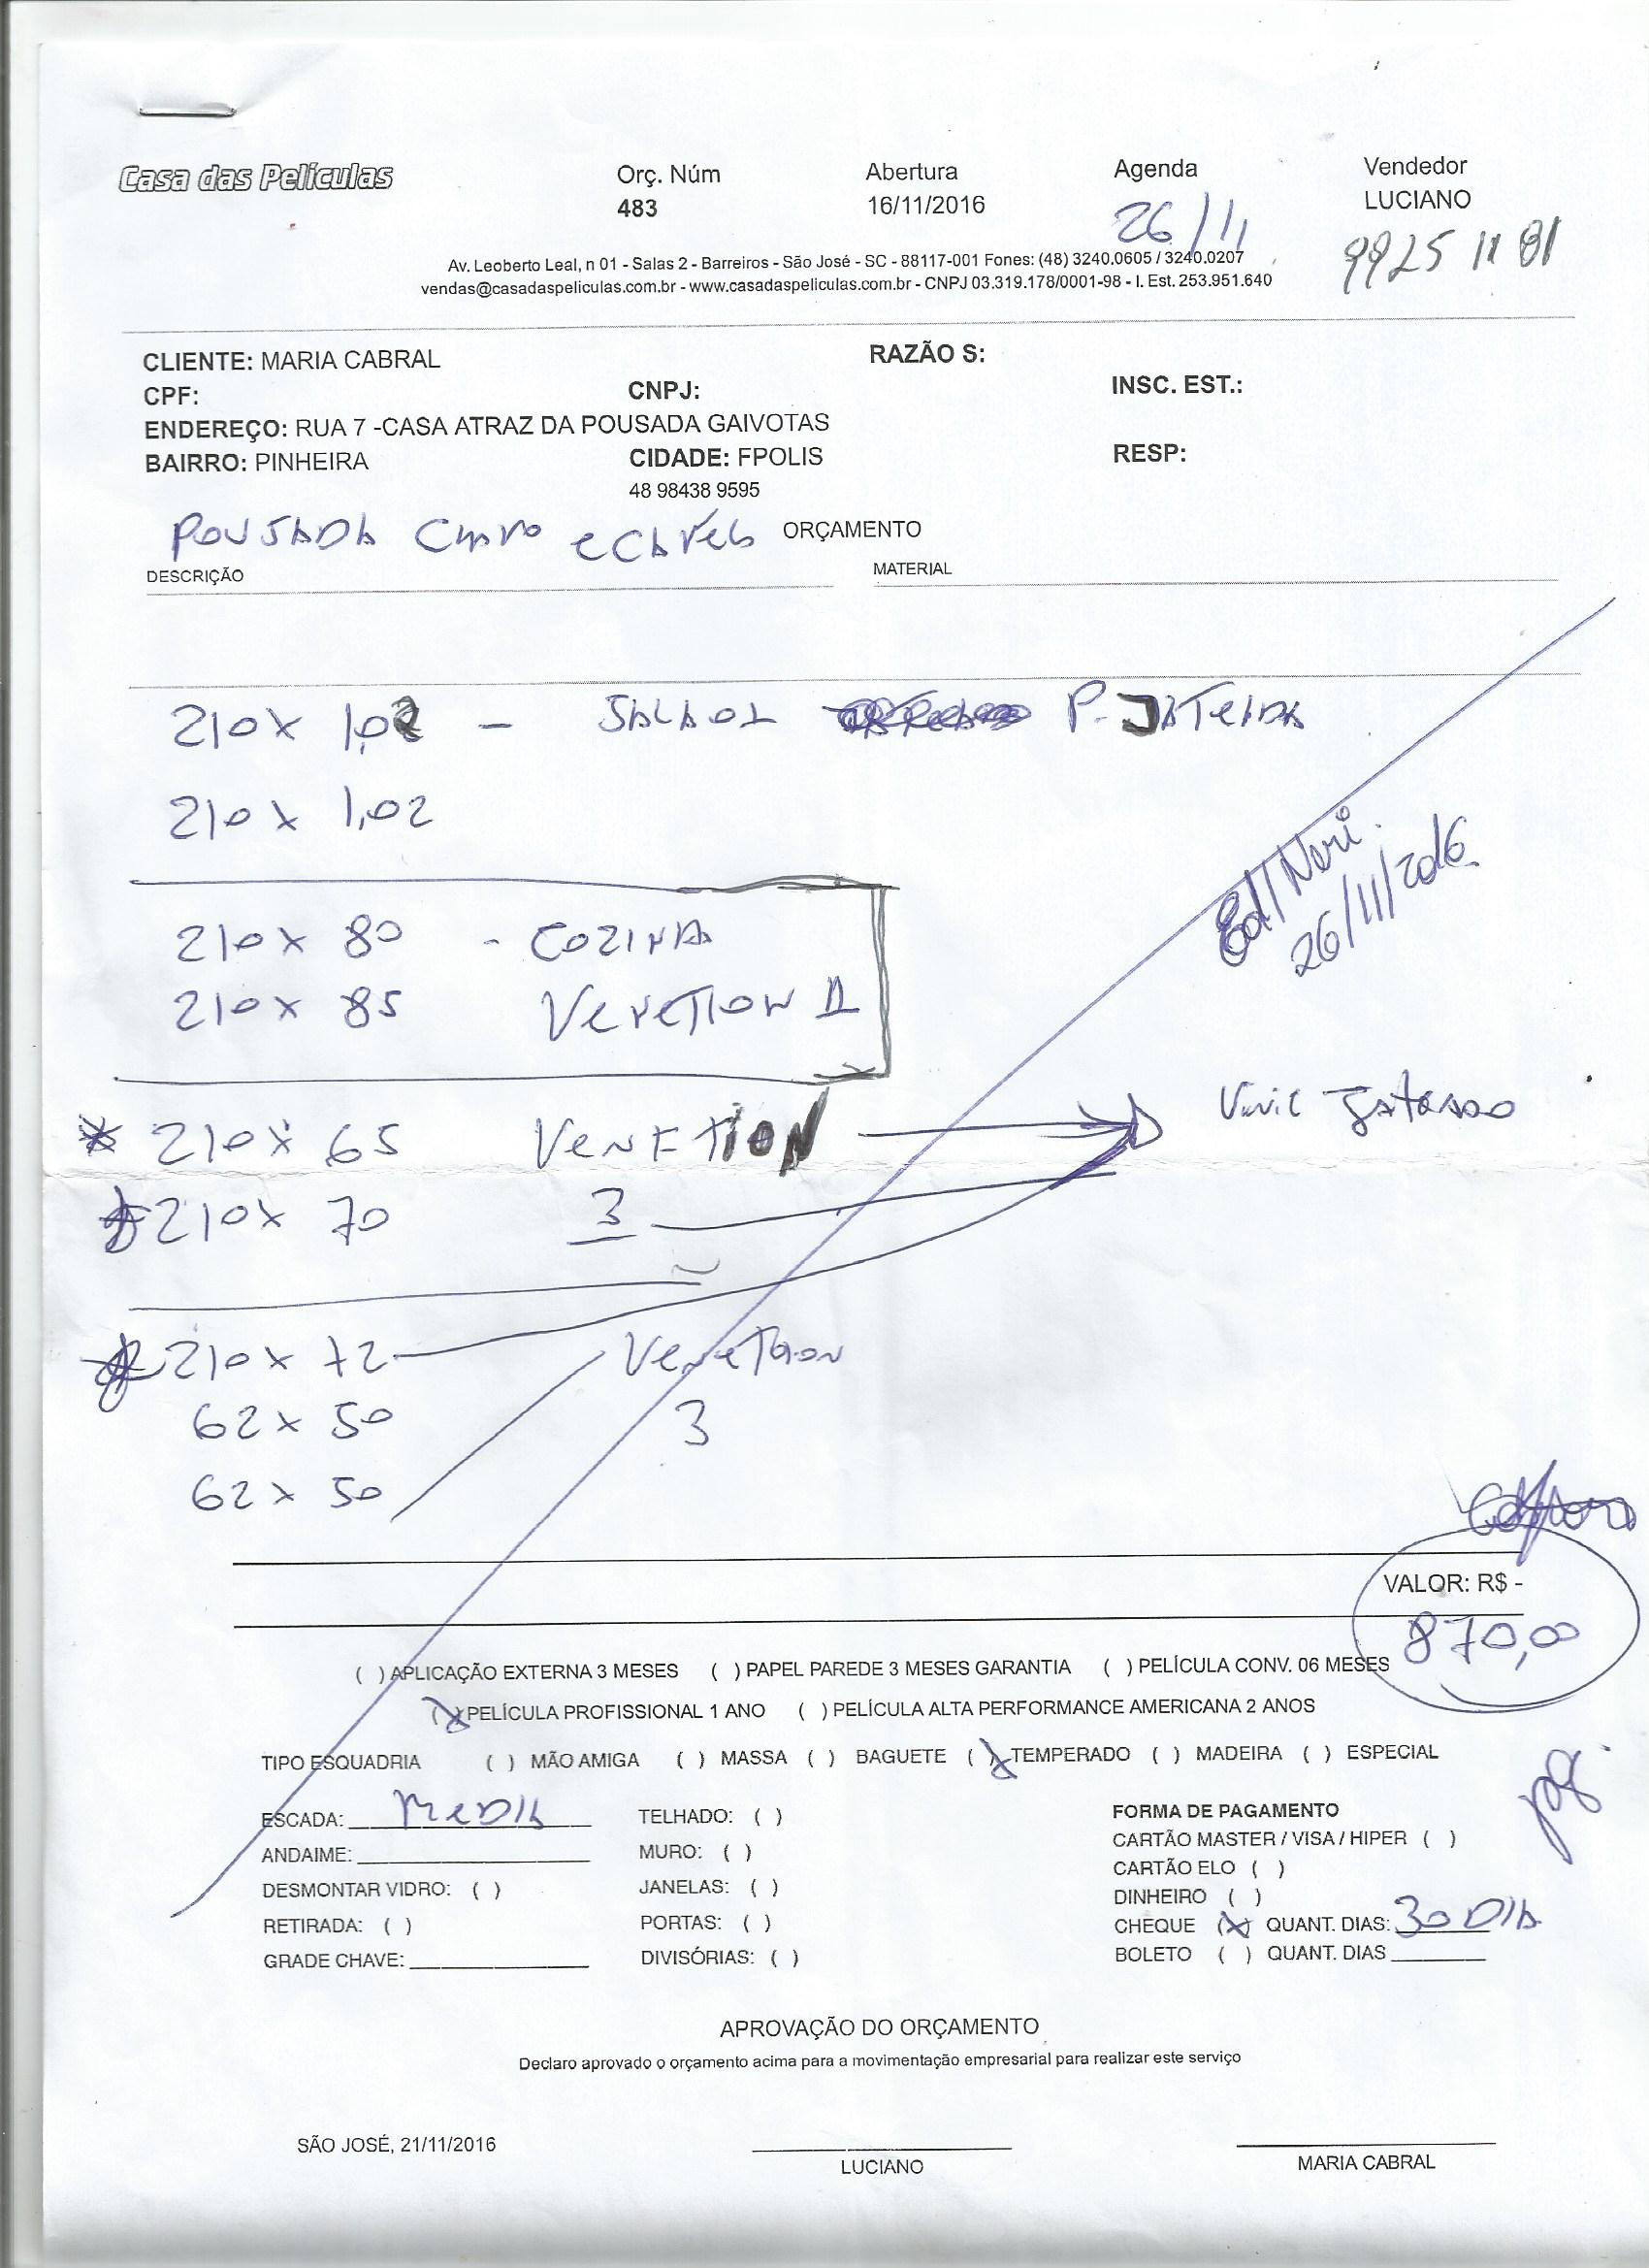 Casa das Películas
Orç. Núm Abertura Agenda Vendedor
483 16/11/2016 26/11 LUCIANO
9925 1181
Av. Leoberto Leal, n 01 - Salas 2 - Barreiros - São José - SC - 88117-001 Fones: (48) 3240.0605 / 3240.0207
vendas@casadaspeliculas.com.br - www.casadaspeliculas.com.br - CNPJ 03.319.178/0001-98 - I. Est. 253.951.640
CLIENTE: MARIA CABRAL RAZÃO S:
CPF: CNPJ: INSC. EST.:
ENDEREÇO: RUA 7 -CASA ATRAZ DA POUSADA GAIVOTAS
BAIRRO: PINHEIRA CIDADE: FPOLIS RESP:
48 98438 9595
POUSADA ORÇAMENTO
DESCRIÇÃO MATERIAL
210 x 1,02 - P. JATEADA
210 x 1,02
210 x 80 - COZINHA
210 x 85
Edi/Neri
26/11/2016
* 210 x 65 VENETION
* 210 x 70 3
* 210 x 72 VENETION
62 x 50 3
62 x 50
VALOR: R$ -
870,00
( ) APLICAÇÃO EXTERNA 3 MESES ( ) PAPEL PAREDE 3 MESES GARANTIA ( ) PELÍCULA CONV. 06 MESES
(X) PELÍCULA PROFISSIONAL 1 ANO ( ) PELÍCULA ALTA PERFORMANCE AMERICANA 2 ANOS
TIPO ESQUADRIA ( ) MÃO AMIGA ( ) MASSA ( ) BAGUETE (X) TEMPERADO ( ) MADEIRA ( ) ESPECIAL
ESCADA: MEDIA TELHADO: ( ) FORMA DE PAGAMENTO
ANDAIME: MURO: ( ) CARTÃO MASTER / VISA / HIPER ( )
DESMONTAR VIDRO: ( ) JANELAS: ( ) CARTÃO ELO ( )
RETIRADA: ( ) PORTAS: ( ) DINHEIRO ( )
GRADE CHAVE: DIVISÓRIAS: ( ) CHEQUE (X) QUANT. DIAS: 30 DIA
BOLETO ( ) QUANT. DIAS
APROVAÇÃO DO ORÇAMENTO
Declaro aprovado o orçamento acima para a movimentação empresarial para realizar este serviço
SÃO JOSÉ, 21/11/2016
LUCIANO MARIA CABRAL